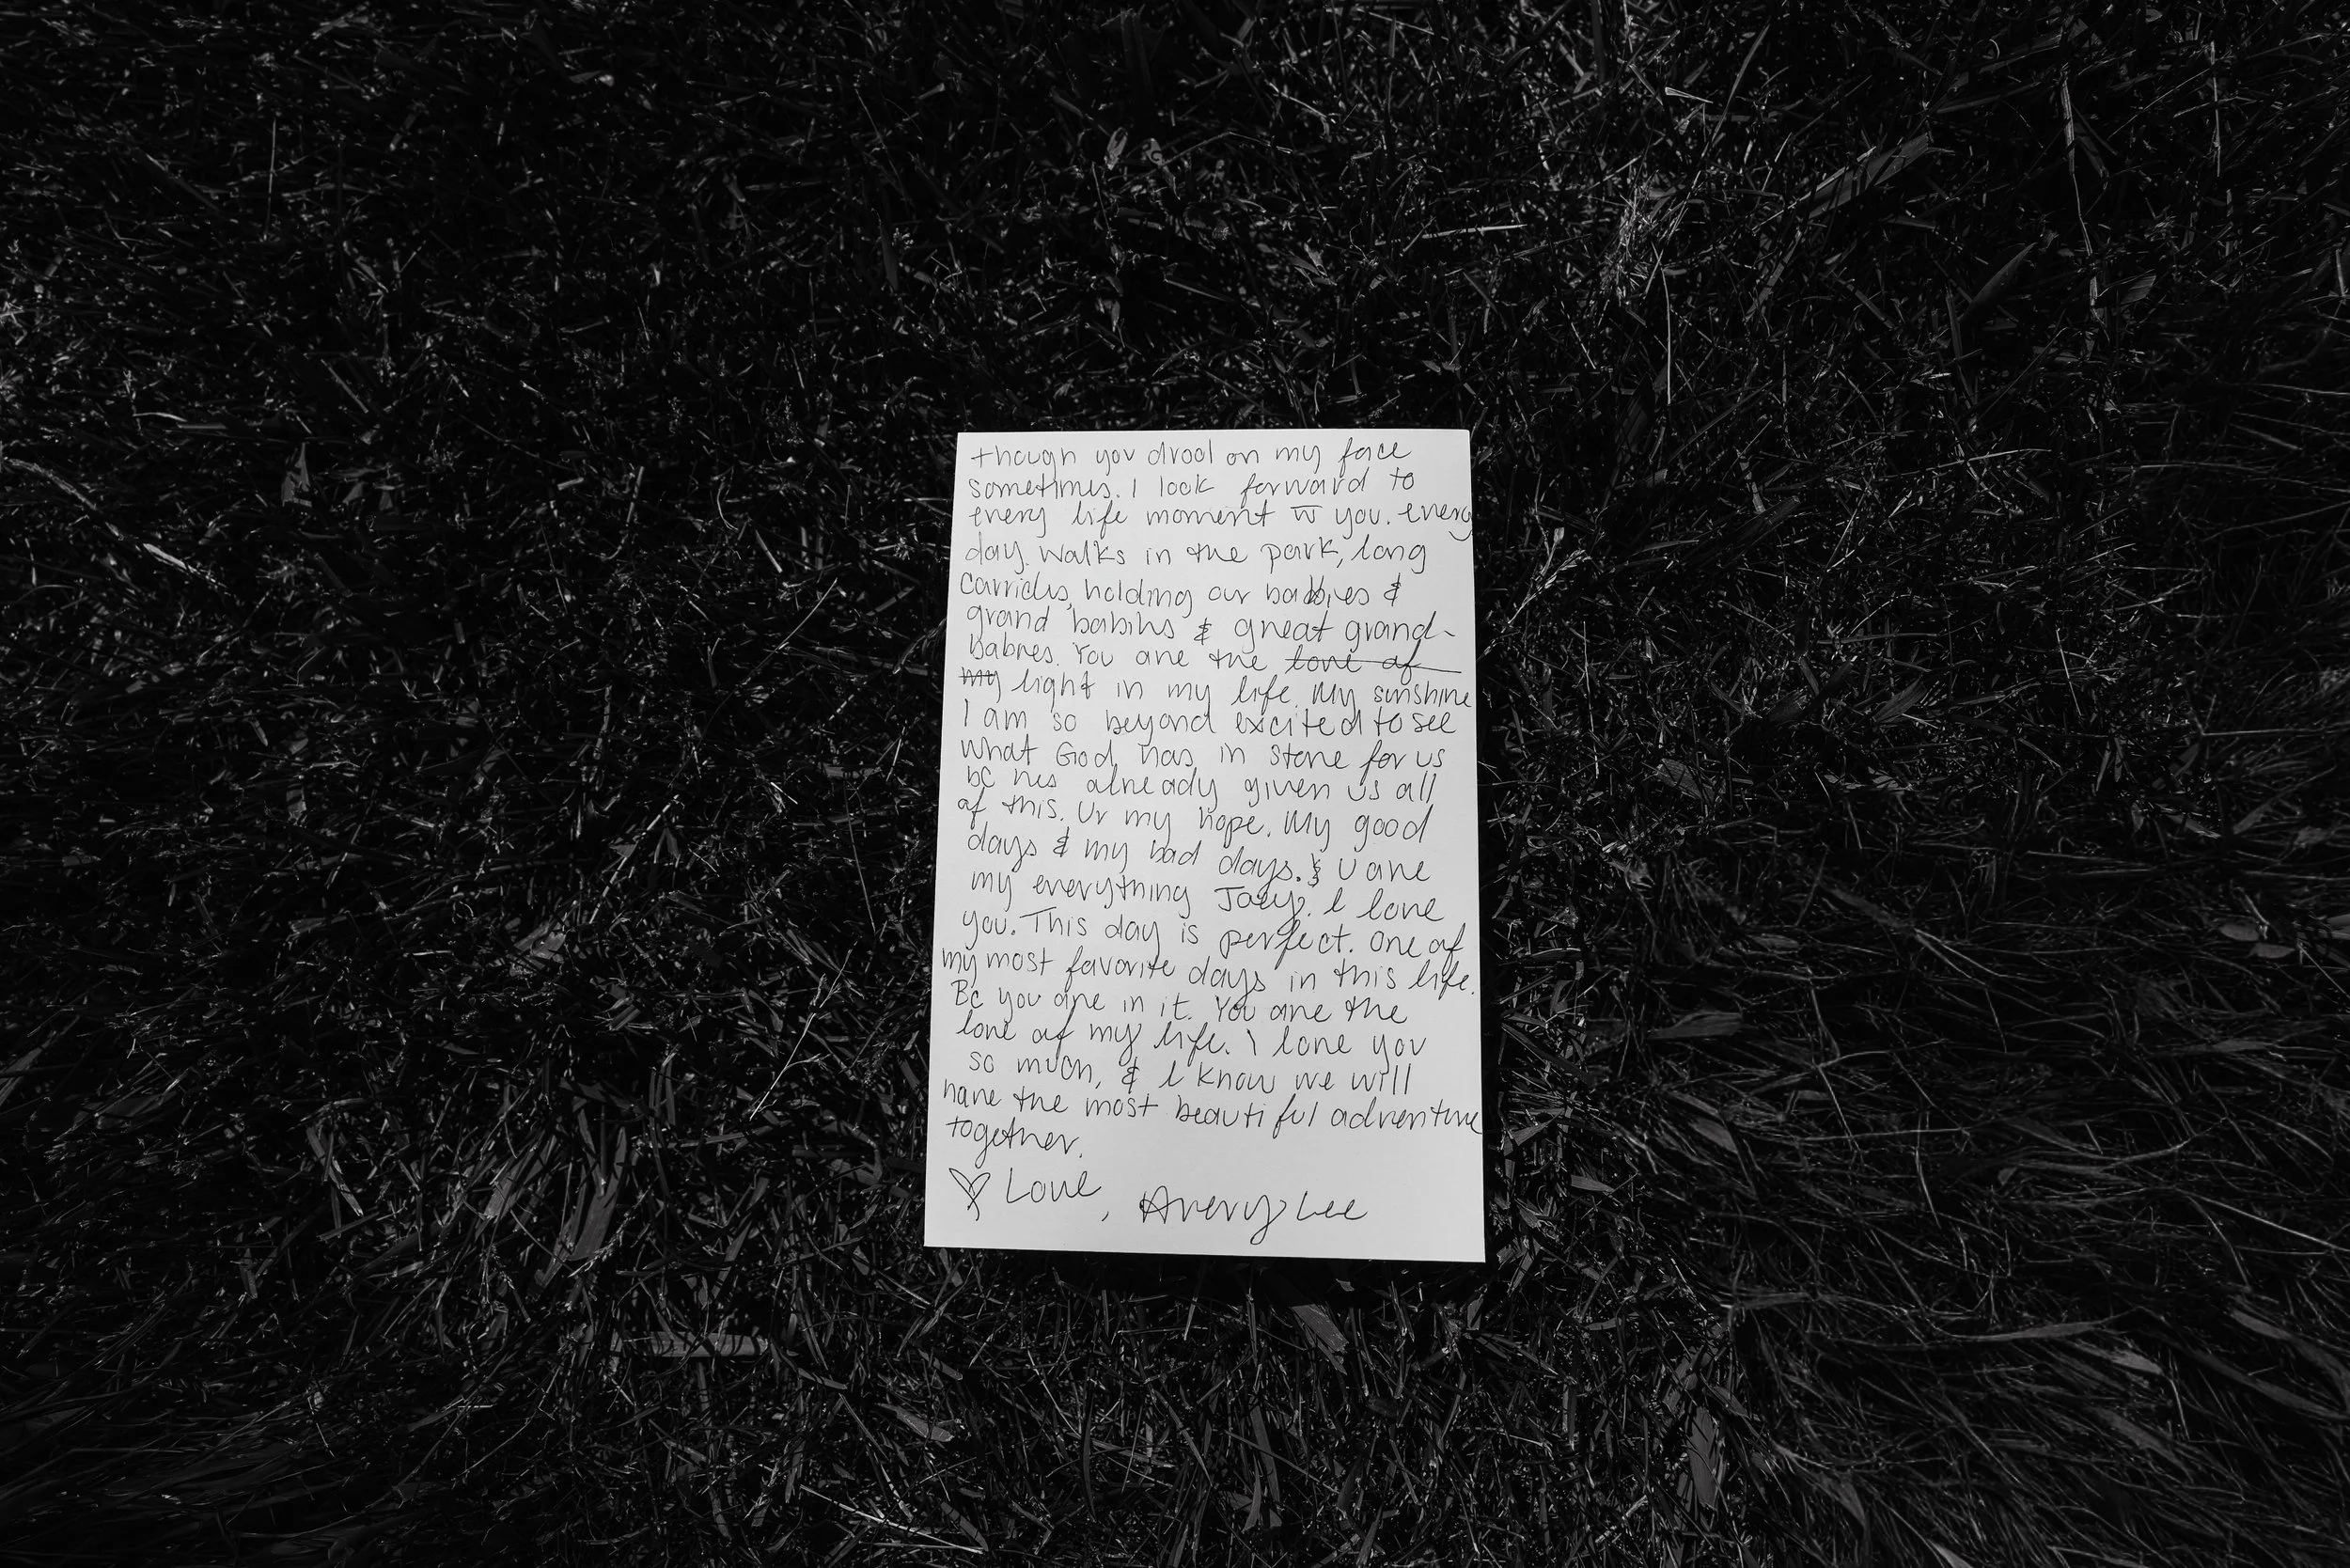 though you drool on my face
sometimes. I look forward to
every life moment w you. every
day. Walks in the park, long
carrides, holding our babbies &
grand babies & great grand-
babies. You are the love of
my light in my life. My sunshine
I am so beyond excited to see
what God has in store for us
bc hes already given us all
of this. Ur my hope. My good
days & my bad days. & U are
my everything Joey. I love
you. This day is perfect. One of
my most favorite days in this life.
Bc you are in it. You are the
love of my life. I love you
so much, & I know we will
have the most beautiful adventure
together.
Love, Avery Lee